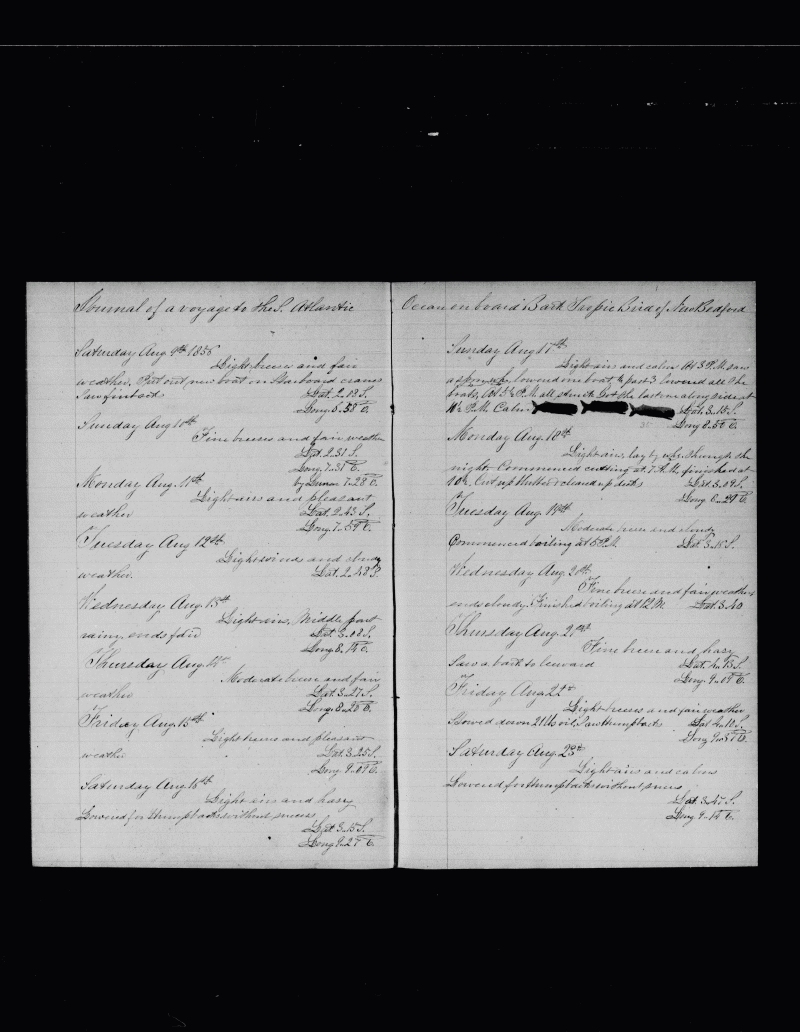 Journal of a voyage to the S. Atlantic
Saturday Aug 9th 1856
Light breeze and fair
weather. Put out new boat on Starboard cranes
Saw finbacks Lat. 2..09 S.
Long. 6..58 E.
Sunday Aug 10th
Fine breeze and fair weather
Lat. 2..31 S.
Long. 7..31 E.
Monday Aug. 11th by Lunar 7..28 E.
Light airs and pleasant
weather Lat. 2..43 S.
Long. 7..59 E.
Tuesday Aug 12th
Light winds and cloudy
weather. Lat. 2..48 S.
Wednesday Aug. 13th
Light airs, Middle part
rainy, ends Lat. 3..08 S.
Long 8..14 E.
Thursday Aug. 14th
Moderate breeze and fair
weather Lat. 3..27 S.
Long. 8..20 E.
Friday Aug. 15th
Light breeze and pleasant
weather Lat. 3..25 S.
Long. 9..09 E.
Saturday Aug. 16th
Light airs and hazy
Lowered for Humpbacks without success
Lat. 3..15 S.
Long. 9..27 E.
Ocean on board Bark Tropic Bird of New Bedford
Sunday Aug 17th
Light airs and calm At 3 P.M. saw
a sperm wh. lowered one boat, ½ past 3 lowered all the
boats, At P.M. all struck Got the last one along side at
P.M. Calm Lat. 3..18 S.
Long 8..56 E.
Monday Aug. 18th
Light airs, lay by wh. through the
night. Commenced cutting at 7 A.M. finished at
10h. Cut up blubber & cleared up decks Lat. 3..09 S.
Long 8..29 E.
Tuesday Aug. 19th
Moderate breeze and cloudy
Commenced boiling at 6 P.M. Lat 3..15 S.
Wednesday Aug. 20th.
Fine breeze and fair weather,
ends cloudy. Finished boiling at 12 M. Lat. 3..40
Thursday Aug. 21st
Fine breeze and hazy
Saw a bark to leeward Lat. 4..13 S.
Long. 9..09 E.
Friday Aug 22d
Light breezes and fair weather
Stowed down oil, Saw humpbacks Lat 4..10 S.
Long 9..51 E.
Saturday Aug. 23d
Light airs and calms
Lowered for Humpbacks without success
Lat. 3..45 S.
Long 9..14 E.